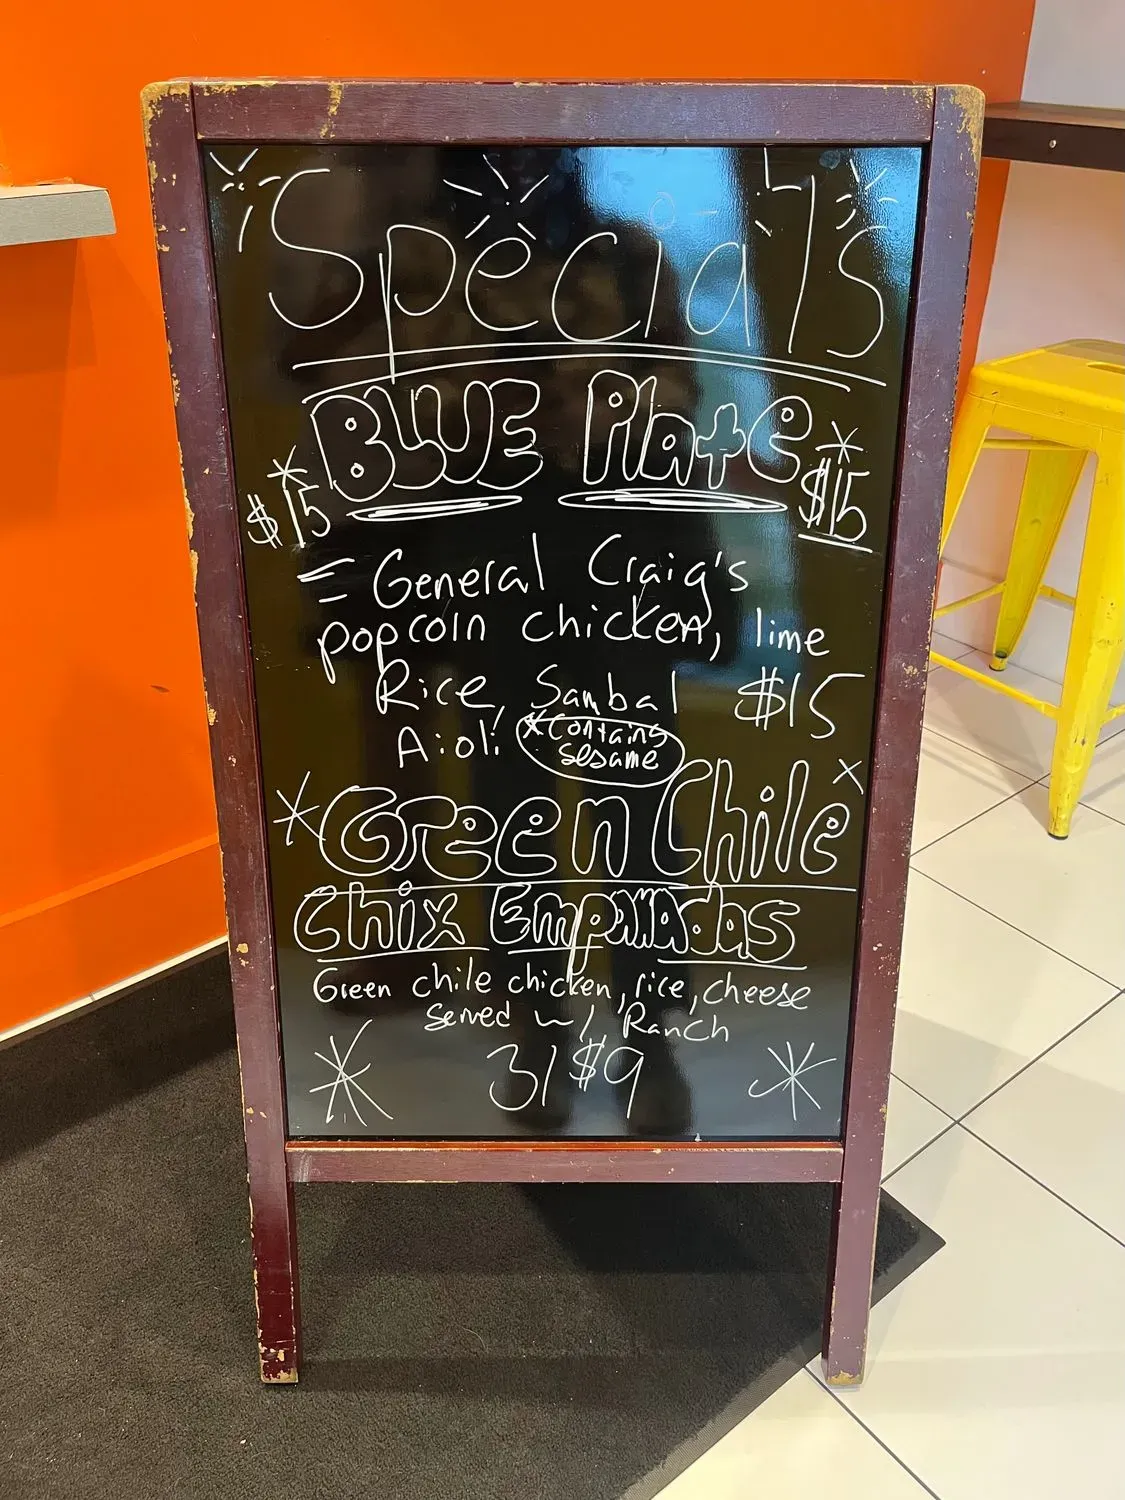 Specials
BLUE Plate
$15 $15
= General Craig's
popcorn chicken, lime
Rice, Sambal $15
Aioli *Contains
sesame
Green Chile
Chix Empanadas
Green chile chicken, rice, cheese
served w/ Ranch
3/$9